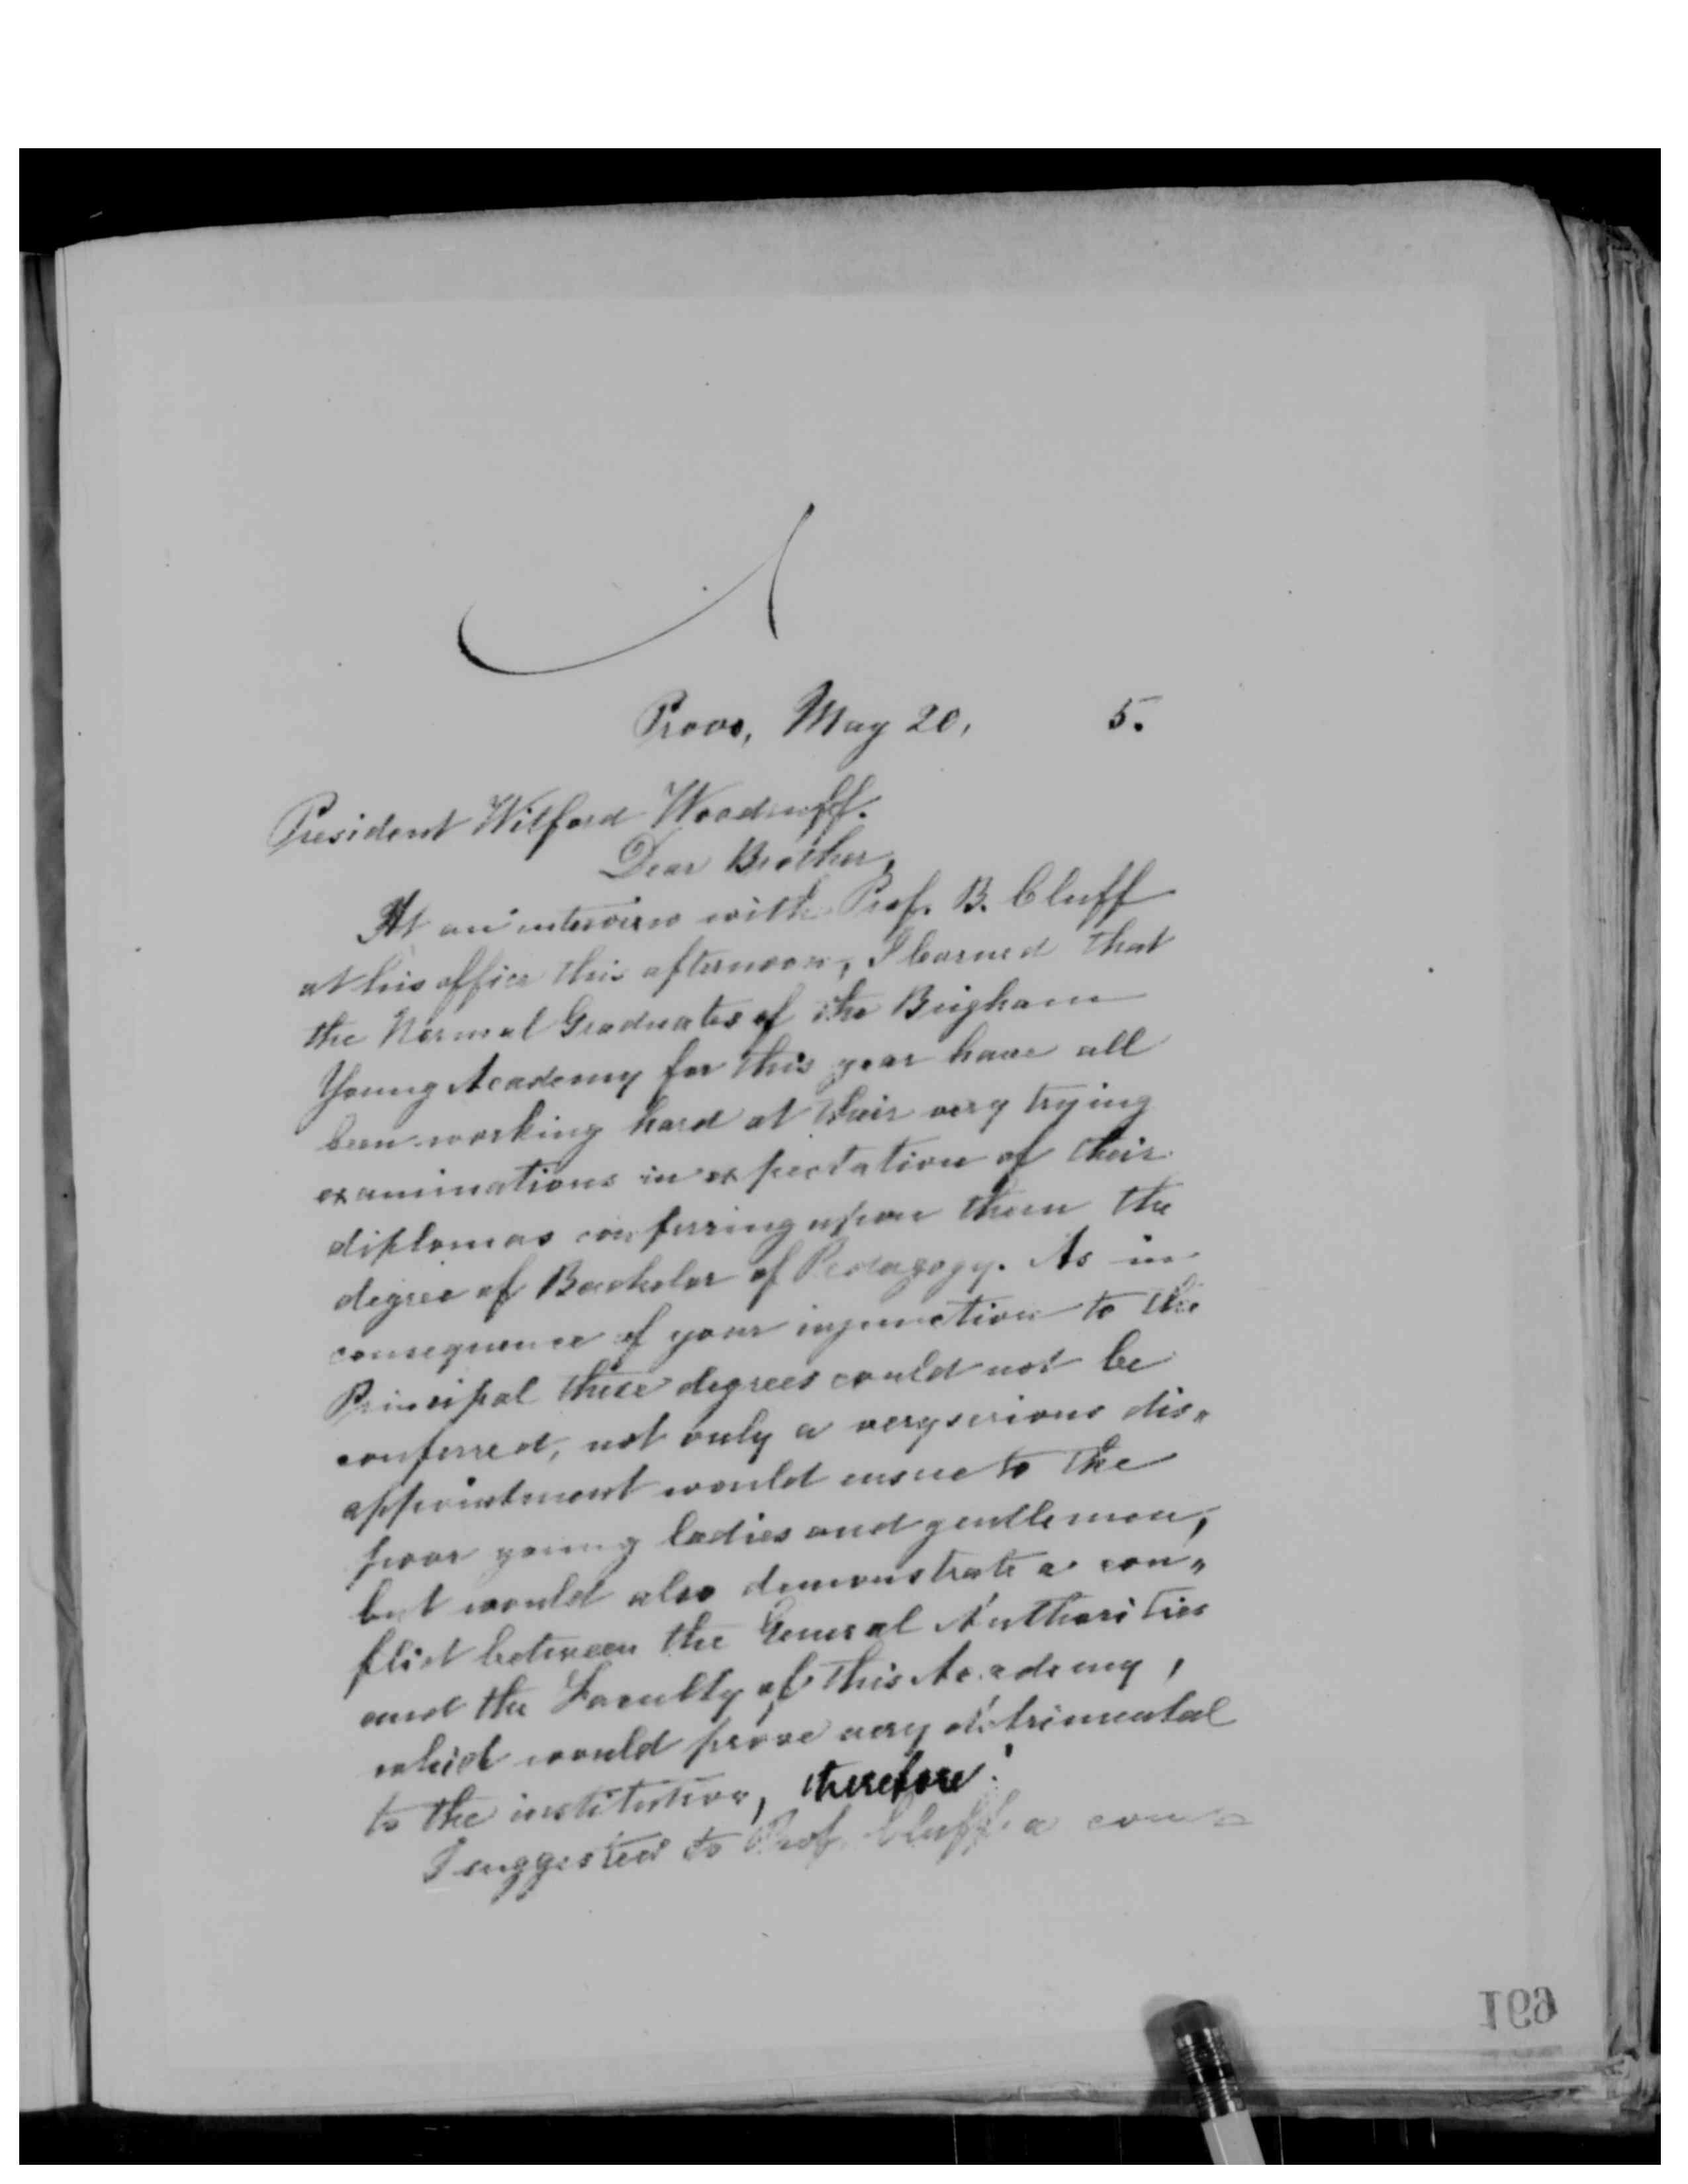 Provo, May 20, 5.
President Wilford Woodruff.
Dear Brother,
At an interview with Prof. B. Cluff
at his office this afternoon, I learned that
the Normal Graduates of the Brigham
Young Academy for this year have all
been working hard at their very trying
examinations in expectation of their
diplomas conferring upon them the
degree of Bachelor of Pedagogy. As in
consequence of your injunction to the
Principal these degrees could not be
conferred, not only a very serious dis„
appointment would ensue to the
poor young ladies and gentlemen,
but would also demonstrate a con„
flict between the General Authorities
and the Faculty of this Academy,
which would prove very detrimental
to the institution, therefore
I suggested to Prof. Cluff a com-
169